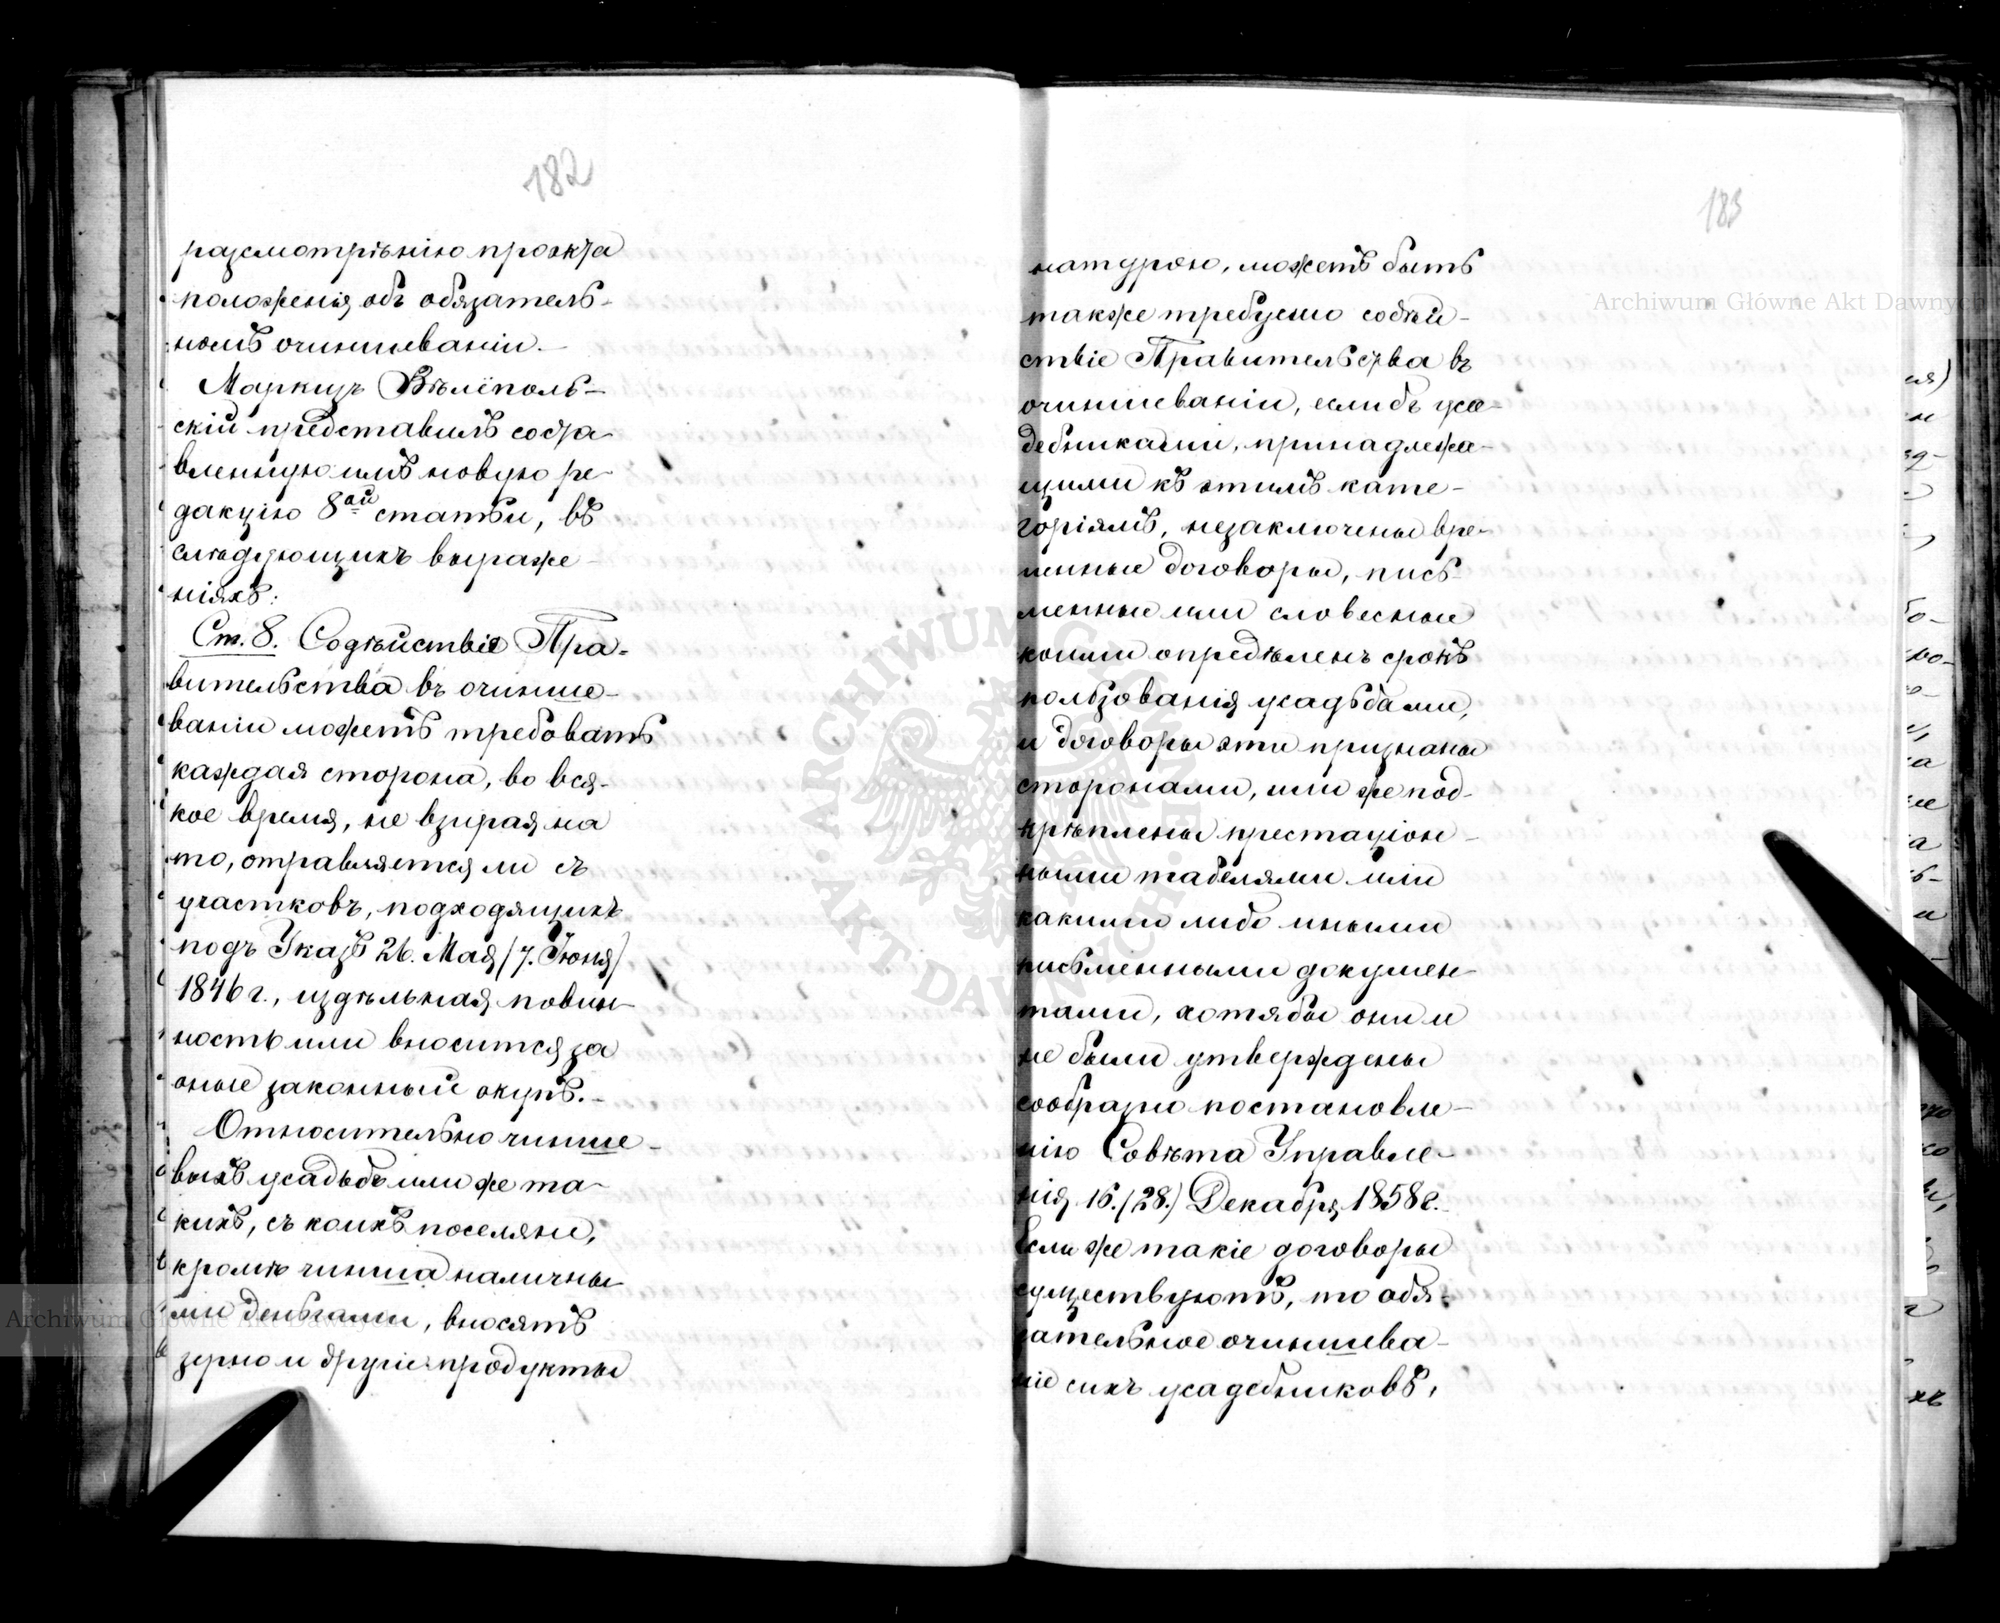 182
разсмотрѣнію проэкта
положенія объ обязатель-
номъ очиншеваніи.-
Маркизъ Вѣлёполь-
скій представилъ соста-
вленную имъ новую ре-
дакцію 8ой статьи, въ
слѣдующихъ выраже-
ніяхъ:
Ст. 8. Содѣйствіе Пра-
вительства въ очинше-
ваніи можетъ требовать
каждая сторона, во вся-
кое время, не взирая на
то, отправляется ли съ
участковъ, подходящихъ
подъ Указъ 26. Мая (7. Іюня)
1846 г., издѣльная повин-
ность или вносится за
оные законный окупъ.-
Относительно чинше-
выхъ усадьбъ или же та-
кихъ, съ коихъ поселяне,
кромѣ чинша наличны-
ми деньгами, вносятъ
зерно и другіе продукты
183
натурою, можетъ быть
также требуемо содѣй-
ствіе Правительства въ
очиншеваніи, если бъ уса-
дебниками, принадлежа-
щими къ этимъ кате-
горіямъ, незаключены вре-
менные договоры, пись-
менные или словесные
коими опредѣленъ срокъ
пользованія усадьбами,
и договоры эти признаны
сторонами, или же под-
крѣплены престаціон-
ными табелями или
какими либо иными
письменными докумен-
тами, хотя бы они и
не были утверждены
сообразно постановле-
нію Совѣта Управле-
нія 16. (28.) Декабря 1858 г.
Если же такіе договоры
существуютъ, то обя-
зательное очиншева-
ніе сихъ усадебниковъ,
Archiwum Główne Akt Dawnych
Archiwum Główne Akt Dawnych
ARCHIWUM GŁÓWNE AKT DAWNYCH